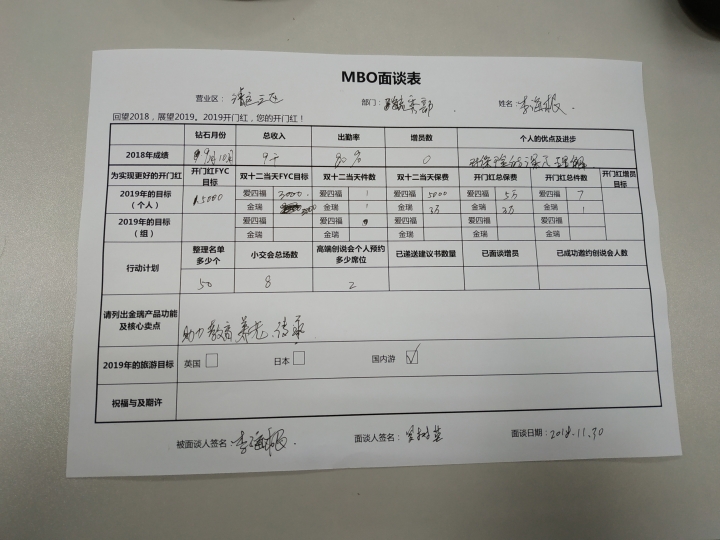 MBO面谈表
营业区： 部门： 姓名：李海根
回望2018，展望2019。2019开门红，您的开门红！
钻石月份 总收入 出勤率 增员数 个人的优点及进步
2018年成绩 9月10月 9千 80% 0
为实现更好的开门红 开门红FYC目标 双十二当天FYC目标 双十二当天件数 双十二当天保费 开门红总保费 开门红总件数 开门红增员目标
2019年的目标（个人） 15000 爱四福 3000 爱四福 1 爱四福 5000 爱四福 5万 爱四福 7
金瑞 3000 金瑞 1 金瑞 3万 金瑞 3万 金瑞 1
2019年的目标（组） 爱四福 爱四福 爱四福 爱四福 爱四福
金瑞 金瑞 金瑞 金瑞 金瑞
行动计划 整理名单多少个 小交会总场数 高端创说会个人预约多少席位 已递送建议书数量 已面谈增员 已成功邀约创说会人数
50 8 2
请列出金瑞产品功能及核心卖点 助力教育 养老 传承
2019年的旅游目标 英国 日本 国内游 ✓
祝福与及期许
被面谈人签名：李海根 面谈人签名： 面谈日期：2018.11.30